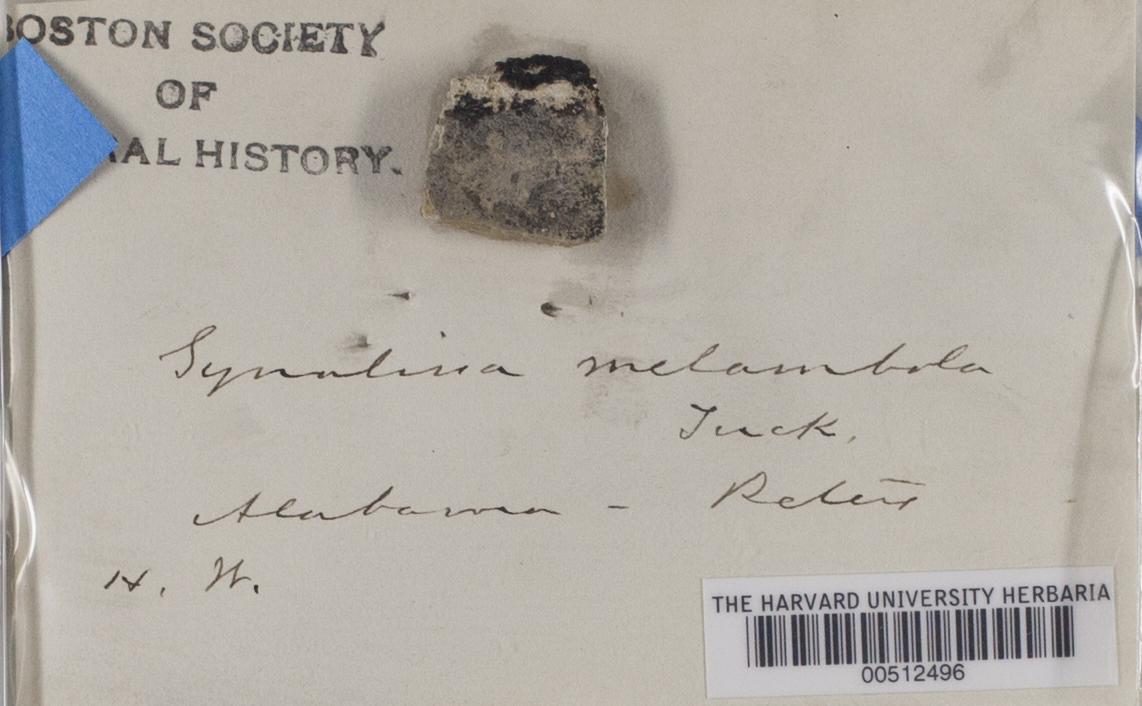 BOSTON SOCIETY
OF
AL HISTORY.
Synalissa melambola
Tuck.
Alabama - Peters
H. W.
THE HARVARD UNIVERSITY HERBARIA
00512496